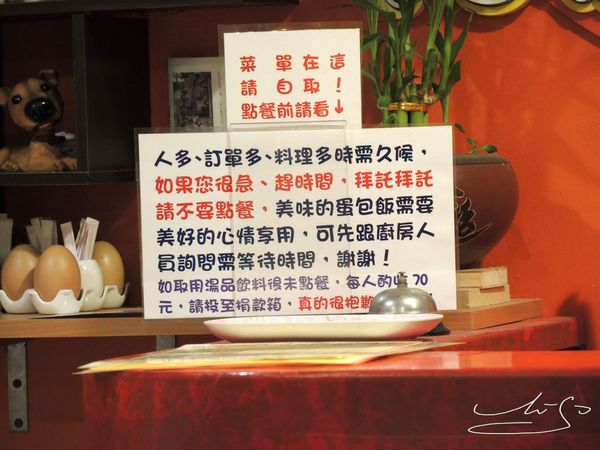 菜單在這
請自取！
點餐前請看↓
人多、訂單多、料理多時需久候，
如果您很急、趕時間，拜託拜託
請不要點餐，美味的蛋包飯需要
美好的心情享用，可先跟廚房人
員詢問需等待時間，謝謝！
如取用湯品飲料後未點餐，每人酌收70
元，請投至捐款箱，真的很抱歉